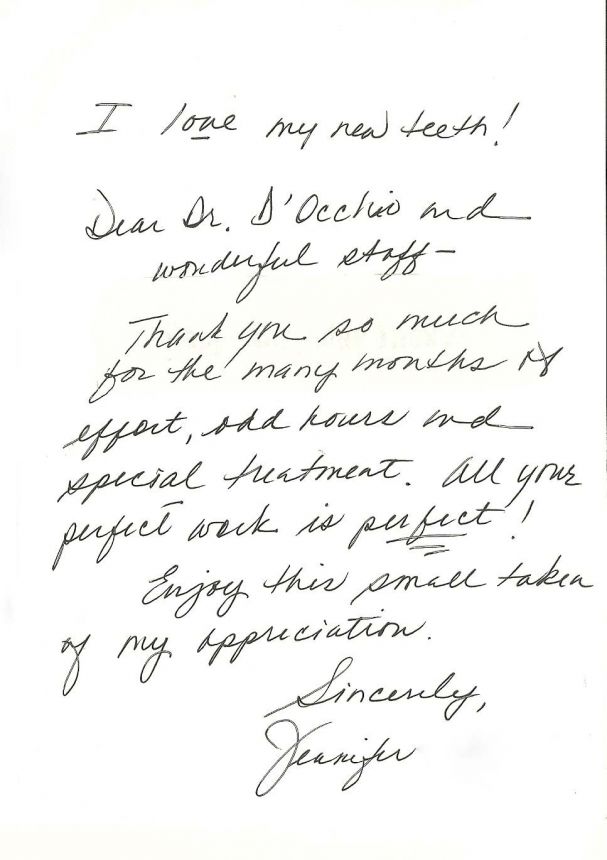 I love my new teeth!
Dear Dr. D'Occhio and
wonderful staff-
Thank you so much
for the many months of
effort, odd hours and
special treatment. All your
perfect work is perfect!
Enjoy this small token
of my appreciation.
Sincerely,
Jennifer